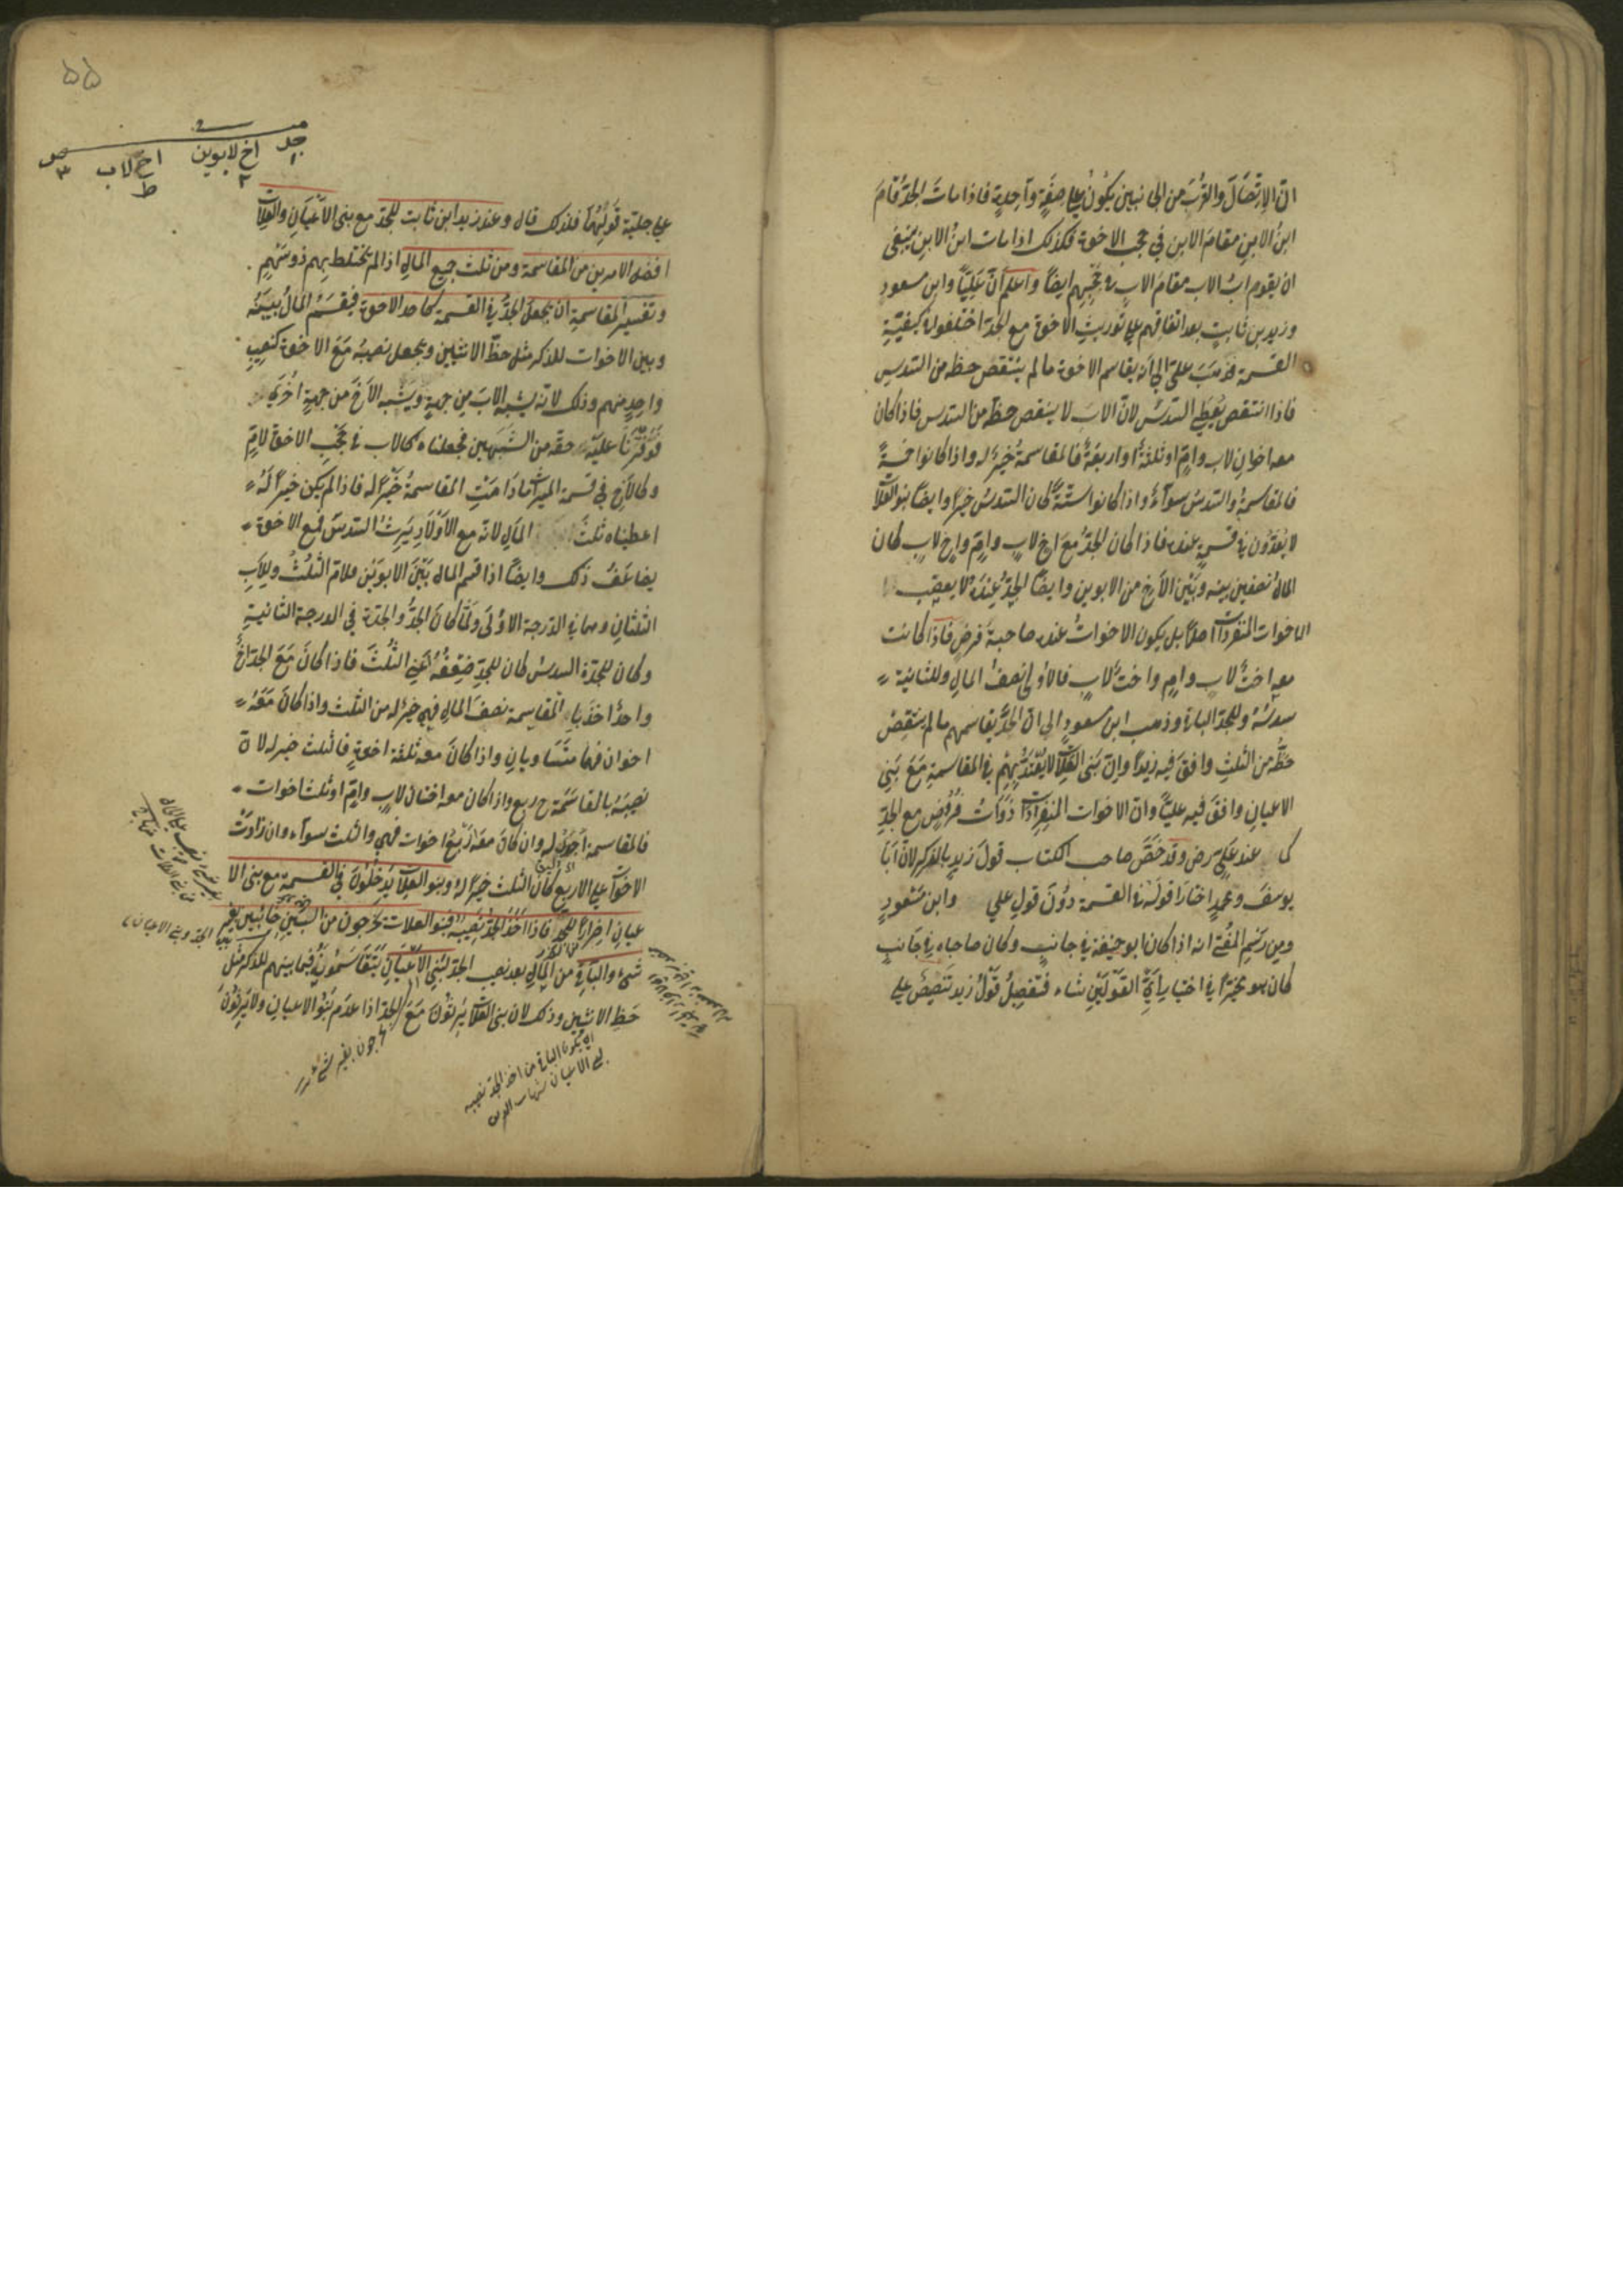 انّ الاِتِّصَالَ والقُربَ من الجانبين يكُونُ علي صِفَةٍ وآحِدةٍ فاذا ماتَ الجدّ قامَ
ابنُ الابنِ مقامَ الابن في حجب الاخوة فكذلك اذا مات ابنُ الابنِ ينبغي
ان يقوم ابُ الاب مقامَ الاب في حجبِهم ايضًا واعلم انّ عَلِيًّا وابن مسعودٍ
وزيد بن ثابتٍ بعد اتفاقهم علي توريث الاخوة مع الجدّ اختلفوا في كيفيّةِ
القسمة فذهبَ عليٌّ الي انّه يقاسم الاخوة ما لم ينتقص حظه من السّدس
فاذا انتقص يُعطي السّدسُ لانّ الابَ لا ينقص حظّه من السّدس فاذا كان
معه اخوان لاب وامٍّ او ثلثةٌ او اربعةٌ فالمقاسمةُ خيرٌ له واذا كانوا خمسةً
فالمقاسمةُ والسّدسُ سوآءٌ واذا كانوا ستّةً كان السّدسُ خيرًا وايضًا بنوا العلّات
لا يُعَدّون في قسمةٍ عنده فاذا كان الجدُّ معَ اخٍ لابٍ وامٍّ واخٍ لابٍ كان
المالُ نصفين بينه وبَيْن الاَخِ من الابوين وايضًا الجدُّ عِندَهُ لا يعصِّب
الاخوات المنفردات اصلًا بل يكون الاخواتُ عنده صاحبةَ فرضٍ فاذا كانت
معه اختٌ لابٍ وامٍّ واختٌ لابٍ فالاولي نصفُ المالِ وللثانية
سدسُهُ وللجدّ الباقي وذهب ابن مسعودٍ الي انّ الجدَّ يقاسمهم ما لم ينتقِص
حظُّه من الثلثِ وافقَ فيه زيدًا وانّ بَني العلّات لا يُعْتَدُّ بِهِمْ في المقاسمةِ مَعَ بَنِي
الاعيانِ وافقَ فيه عليًّا وانّ الاخوات المنفرِدَاتِ ذَوَاتُ فُرُوضٍ مع الجدِّ
كما عند عليٍّ رض وقد خَصَّ صاحب الكتاب قولَ زيدٍ بالذكر لانّ اَبَا
يوسفَ ومحمدٍ اختارا قولَه في القسمة دوُنَ قولِ علي وابن مَسْعودٍ
ومن رَسْمِ المُفْتي انه اذا كان ابو حنيفة في جانبٍ وكان صاحباه في جَانبٍ
كان هو مخيّرًا في اختيار اَيِّ القَوْلَيْنِ شاء فتفصِيلُ قَوْلُ زيد تنصِيصٌ علي
۵۵
جد ١
اخ لابوين ٢
اخ لاب ط
علي جليّة قَولَيْهِمَا فلذلك قال وعند زيد ابن ثابت للجدّ مع بني الاَعْيَانِ والعلّات
افضل الامرين من المقاسمة ومن ثلث جميع المالِ اذا لم يختلط بِهِم ذو سَهْمٍ
وتفسير المقاسمةِ ان يجعلَ الجدُّ في القسمة كاحد الاخوة فيقسَمُ المالُ بينَهُ
وبين الاخوات للذكر مثل حظّ الانثيين ويجعل نصيبُهُ مَعَ الاخوة كنصيبِ
واحِدٍ منهم وذلك لانّه يشبِه الابَ من جهةٍ ويَشْبِه الاَخَ من جهةٍ اُخْري
فَوَفَّرْنَا عليه حقّه من الشَّبَهين فجعلناه كالاب في حَجْبِ الاخوة لامٍّ
وكالاَخِ في قسمة الميراث مَادَامَتِ المقاسمةُ خَيْرًا له فاذا لم يكن خيرًا لَهُ
اعطيناه ثلثَ المَالِ لانّه مع الاَوْلَادِ يَرِثُ السّدسَ فمع الاخوة
يضاعَفُ ذلك وايضًا اذا قسم المال بَيْنَ الابوَيْن فلامّ الثُلُثُ وللاَبِ
الثلثانِ وهما في الدّرجة الاوُلَى ولمّا كانَ الجدُّ والجدّة في الدرجة الثانيةِ
وكان للجدّة السّدسُ كان للجدِّ ضِعْفُهُ اَعْنِي الثُلُثَ فاذا كانَ مَعَ الجدّ اَخٌ
واحدٌ اخذَ بالمقاسمة نصفَ المالِ فهي خيرٌ له من الثلث واذا كانَ مَعَهُ
اخوان فهما متَسَاويانِ واذا كانَ معه ثلثة اخوةٍ فالثلث خير له لانّ
نصِيبَهُ بالمقاسَمَةِ ح ربع واذا كان معه اختان لابٍ وامٍّ او ثلث اخوات
فالمقاسمة اَجْوَدُ له وان كانَ معَهُ اَرْبَعُ اخوات فهي والثلث سوآء وان زادَتْ
الاخوات علي الاربع كان الثلث خيرًا له وبنو العلّات يَدْخُلُونَ في القسمة مع بني الا
عيانِ اِضرارًا للجدّ فاذا اَخَذَ الجدُّ نَصِيبَه فبنو العلات يخرجون من البَيْنِ خائبين بغير
شئ والباقي من المَالِ بعد نصيب الجدّ لبَنِي الاَعْيَانِ يَتَقَاسَمُونَهُ فيما بينهم للذكر مثلُ
حَظِّ الانثيين وذلك لان بني العلات يَرِثُوْنَ مَعَ الجدّ اذا عدم بَنُو الاعيانِ ولا يَرِثُوْنَ